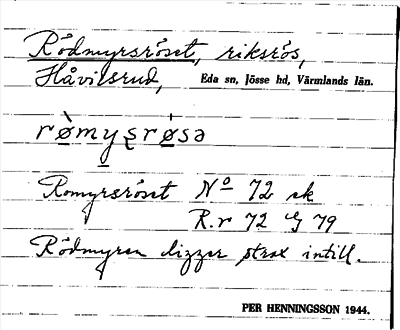 Rödmyrsröset, riksrös,
Håvilsrud, Eda sn, Jösse hd, Värmlands län.
rø̀myʂrø̍sə
Romyrsröset No 72 ek
R.r 72 G 79
Rödmyren ligger strax intill.
PER HENNINGSSON 1944.